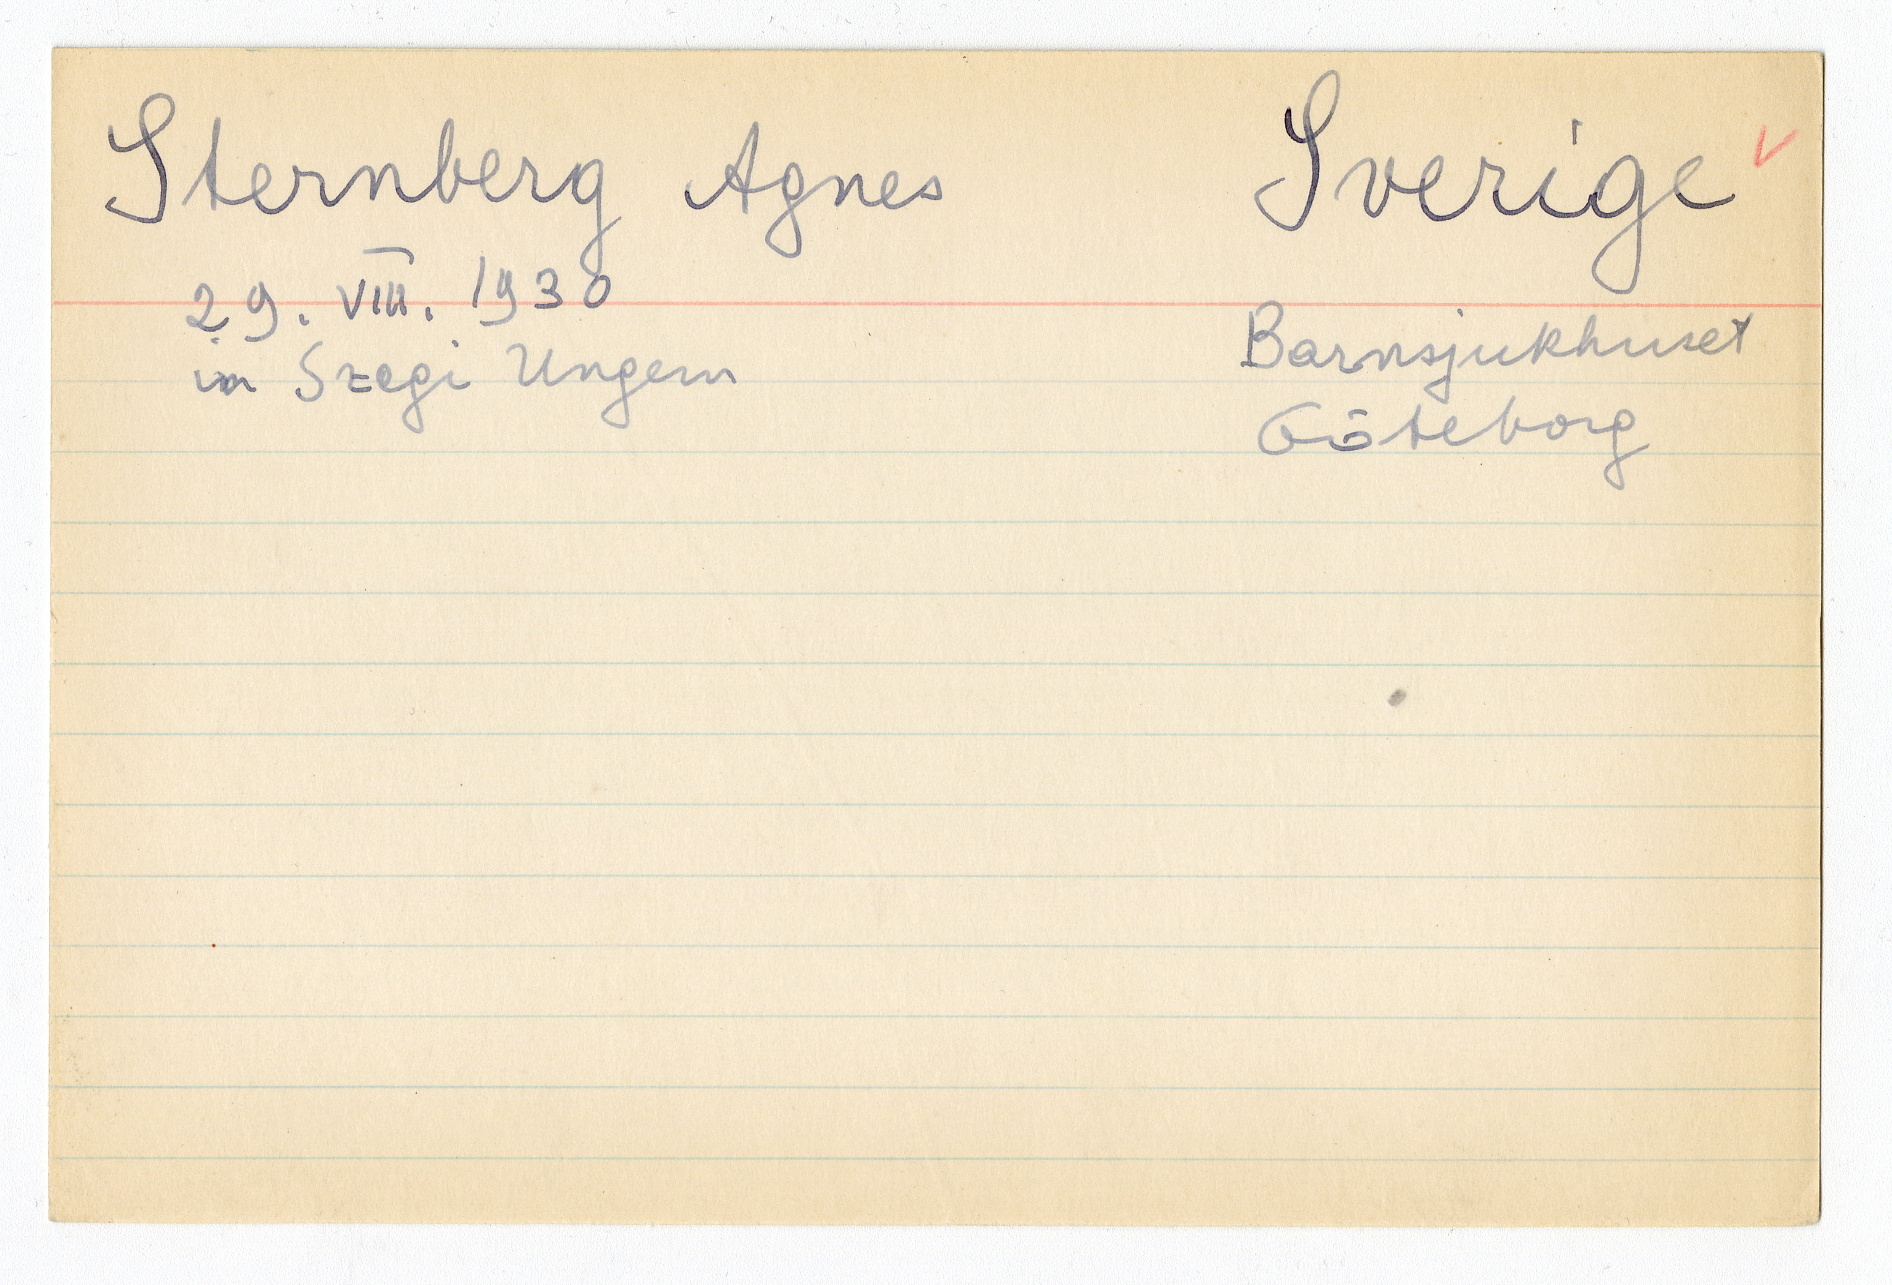 Sternberg Agnes
29. VIII. 1930
in Szegi Ungern
Sverige
Barnsjukhuset
Göteborg